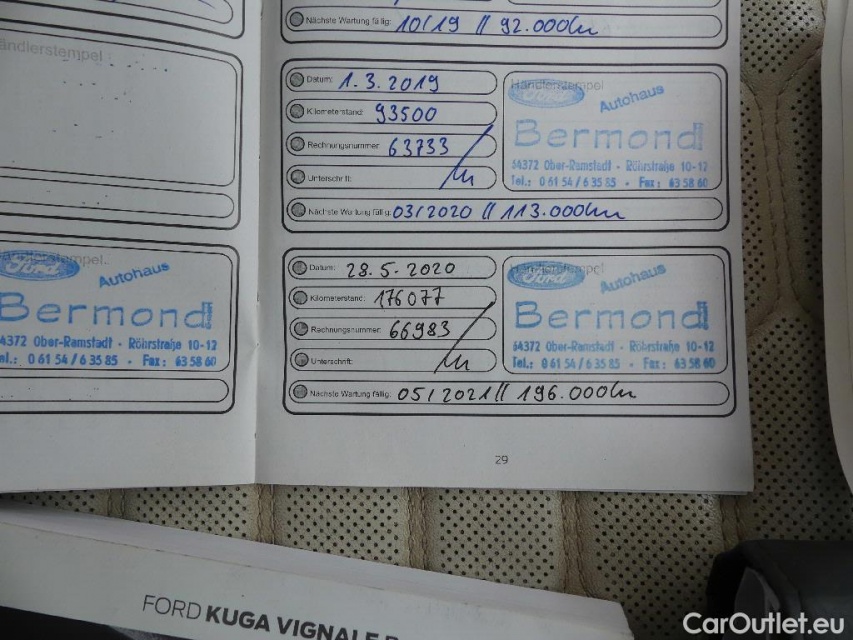 Nächste Wartung fällig: 10/19 // 92.000km
Händlerstempel
Datum: 1.3.2019
Kilometerstand: 93500
Rechnungsnummer: 63733
Unterschrift:
Nächste Wartung fällig: 03/2020 // 113.000km
Händlerstempel
Ford Autohaus
Bermond
64372 Ober-Ramstadt · Röhrstraße 10-12
Tel.: 0 61 54 / 6 35 85 · Fax: 63 58 60
Händlerstempel
Ford Autohaus
Bermond
64372 Ober-Ramstadt · Röhrstraße 10-12
Tel.: 0 61 54 / 6 35 85 · Fax: 63 58 60
Datum: 28.5.2020
Kilometerstand: 176077
Rechnungsnummer: 66983
Unterschrift:
Nächste Wartung fällig: 05/2021 // 196.000km
Händlerstempel
Ford Autohaus
Bermond
64372 Ober-Ramstadt · Röhrstraße 10-12
Tel.: 0 61 54 / 6 35 85 · Fax: 63 58 60
29
FORD KUGA VIGNALE
CarOutlet.eu